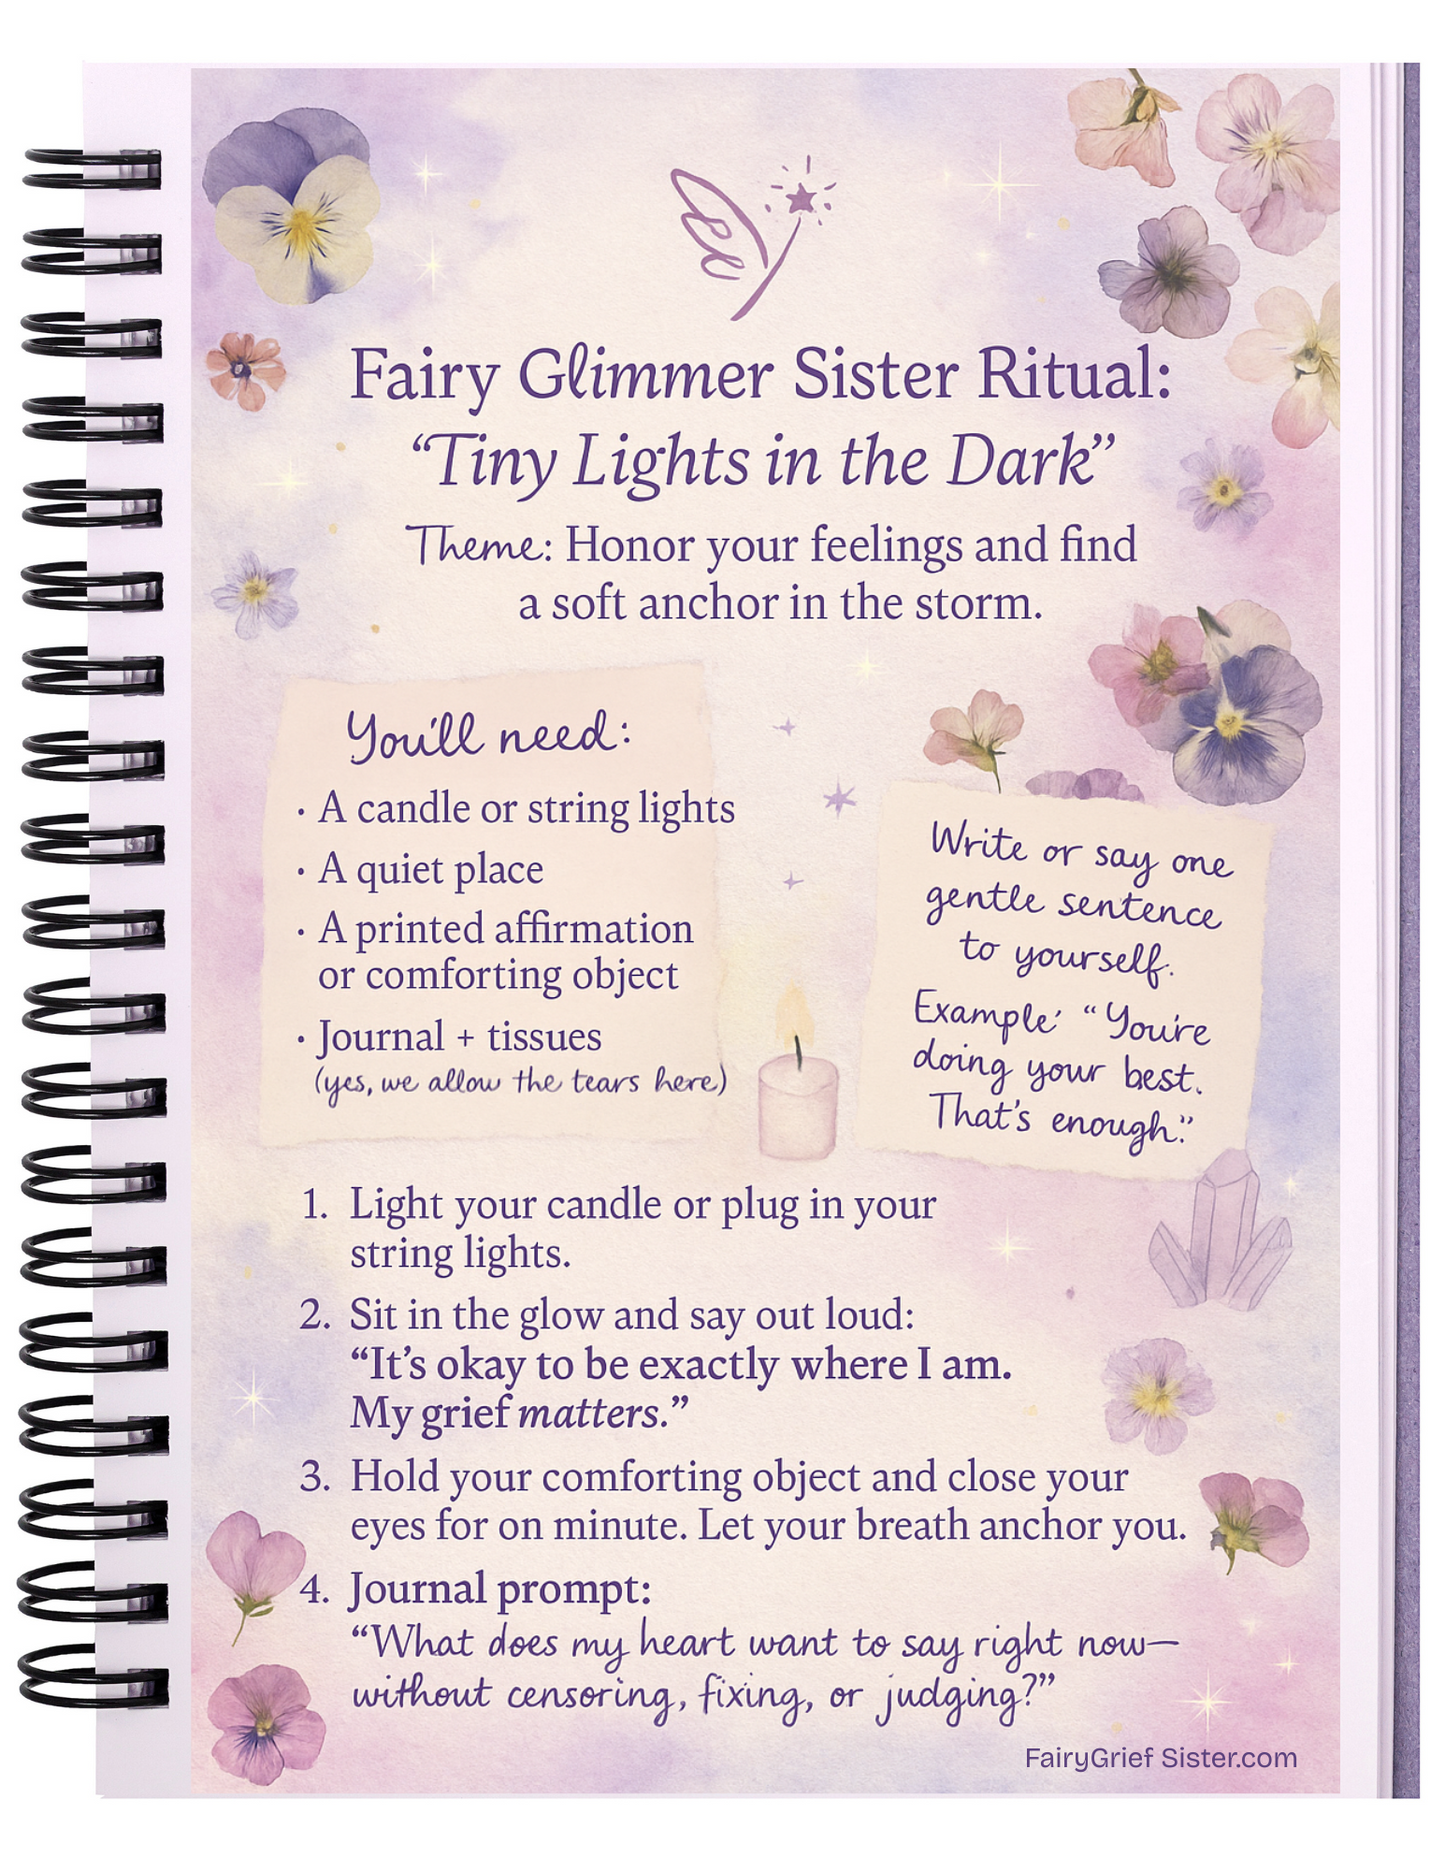 Fairy Glimmer Sister Ritual:
“Tiny Lights in the Dark”
Theme: Honor your feelings and find
a soft anchor in the storm.
You'll need:
· A candle or string lights
· A quiet place
· A printed affirmation
or comforting object
· Journal + tissues
(yes, we allow the tears here)
Write or say one
gentle sentence
to yourself.
Example: “You're
doing your best.
That's enough.”
1. Light your candle or plug in your
string lights.
2. Sit in the glow and say out loud:
“It’s okay to be exactly where I am.
My grief matters.”
3. Hold your comforting object and close your
eyes for on minute. Let your breath anchor you.
4. Journal prompt:
“What does my heart want to say right now—
without censoring, fixing, or judging?”
FairyGrief Sister.com